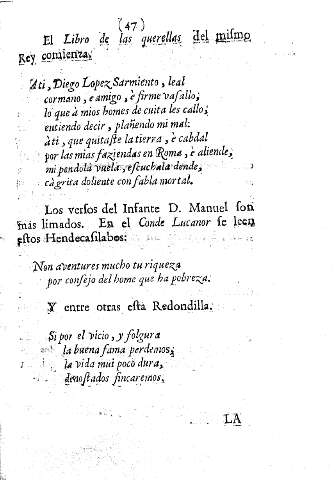 (47)
El Libro de las querellas del mismo
Rey comienza,
Ati, Diego Lopez Sarmiento, leal
cormano, e amigo, è firme vasallo;
lo que à mios homes de cuita les callo;
entiendo decir, plañendo mi mal:
A ti, que quitaste la tierra, è cabdal
por las mias faziendas en Roma, e aliende,
mi pendola vuela, escuchala dende,
ca grita doliente con fabla mortal.
Los versos del Infante D. Manuel son
mas limados. En el Conde Lucanor se leen
estos Hendecasilabos:
Non aventures mucho tu riqueza
por consejo del home que ha pobreza.
Y entre otras esta Redondilla.
Si por el vicio, y folgura
la buena fama perdemos;
la vida mui poco dura,
denostados fincaremos,
LA